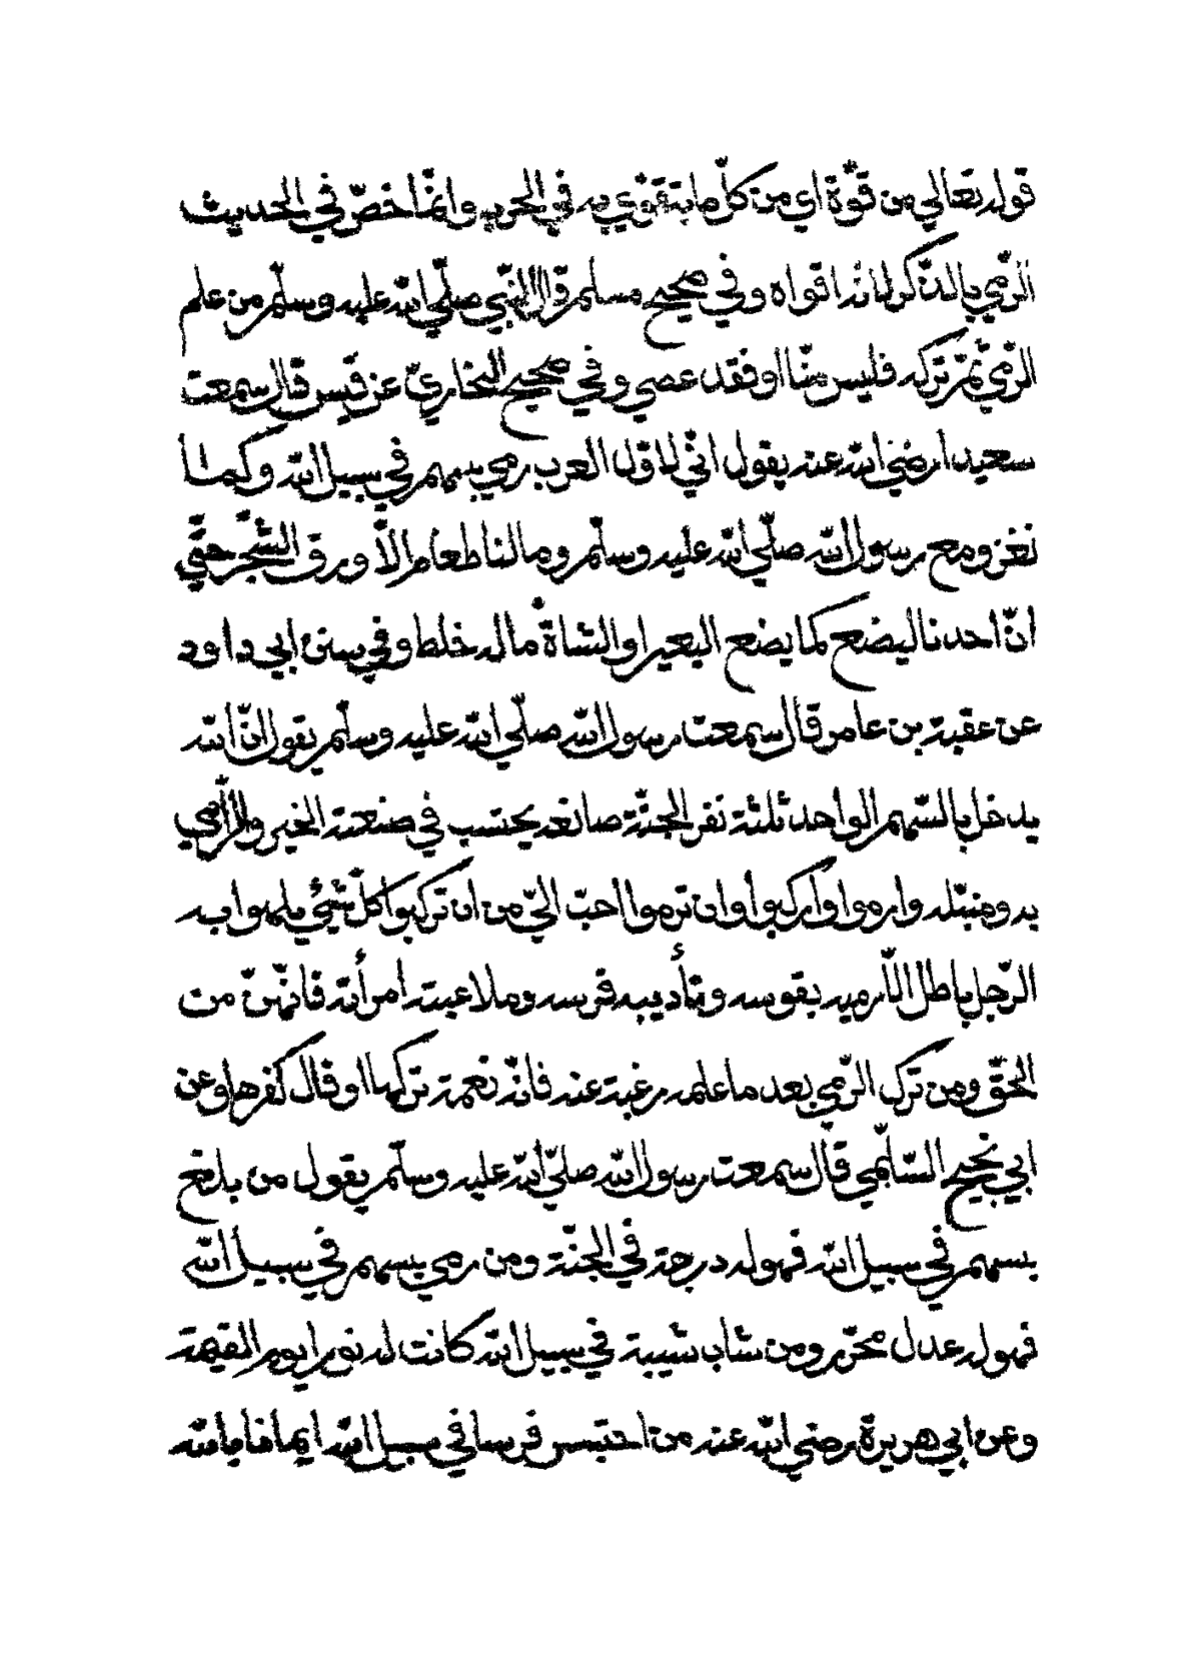 قوله تعالي من قوّة اي من كلّ ما يتقوّي به في الحرب وانّما خصّ في الحديث
الرّمي بالذّكر لانه اقواه وفي صحيح مسلم قال النّبي صلّي الله عليه وسلّم من علم
الرّمي ثمّ تركه فليس منّا او فقد عصي وفي صحيح البخاريّ عن قيس قال سمعت
سعيدا رضي الله عنه يقول انّي لاول العرب رمي بسهم في سبيل الله وكما
نغزو مع رسول الله صلّي الله عليه وسلّم وما لنا طعام الاّ ورق الشّجر حتّي
انّ احدنا ليضع كما يضع البعير او الشاة ما له خلط وفي سنن ابي داود
عن عقبة بن عامر قال سمعت رسول الله صلّي الله عليه وسلّم يقول انّ الله
يدخل بالسّهم الواحد ثلثة نفر الجنّة صانعه يحتسب في صنعته الخير والرّامي
به ومنبّله وارموا واركبوا وان ترموا احبّ اليّ من ان تركبوا كلّ شئ يلهوا به
الرّجل باطل الاّ رميه بقوسه وتأديبه فرسه وملاعبته امرأته فانّهنّ من
الحقّ ومن ترك الرّمي بعد ما علمه رغبة عنه فانّه نعمة تركها او قال كفرها وعن
ابي نجيح السّلّمي قال سمعت رسول الله صلّي الله عليه وسلّم يقول من بلغ
بسهم في سبيل الله فهو له درجة في الجنّة ومن رمي بسهم في سبيل الله
فهو له عدل محرّر ومن شاب شيبة في سبيل الله كانت له نورا يوم القيمة
وعن ابي هريرة رضي الله عنه من احتبس فرسا في سبيل الله ايمانا بالله